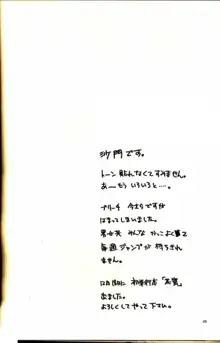 沙門です。
トーン貼れなくてすみません。
あーもういろいろと…。
ブリーチ 今さらですが
はまってしまいました。
男も女も みんな かっこよく夢で
毎週ジャンプが待ちきれ
ません。
初単行本「志賀」
出ました。
よろしくしてやって下さい。